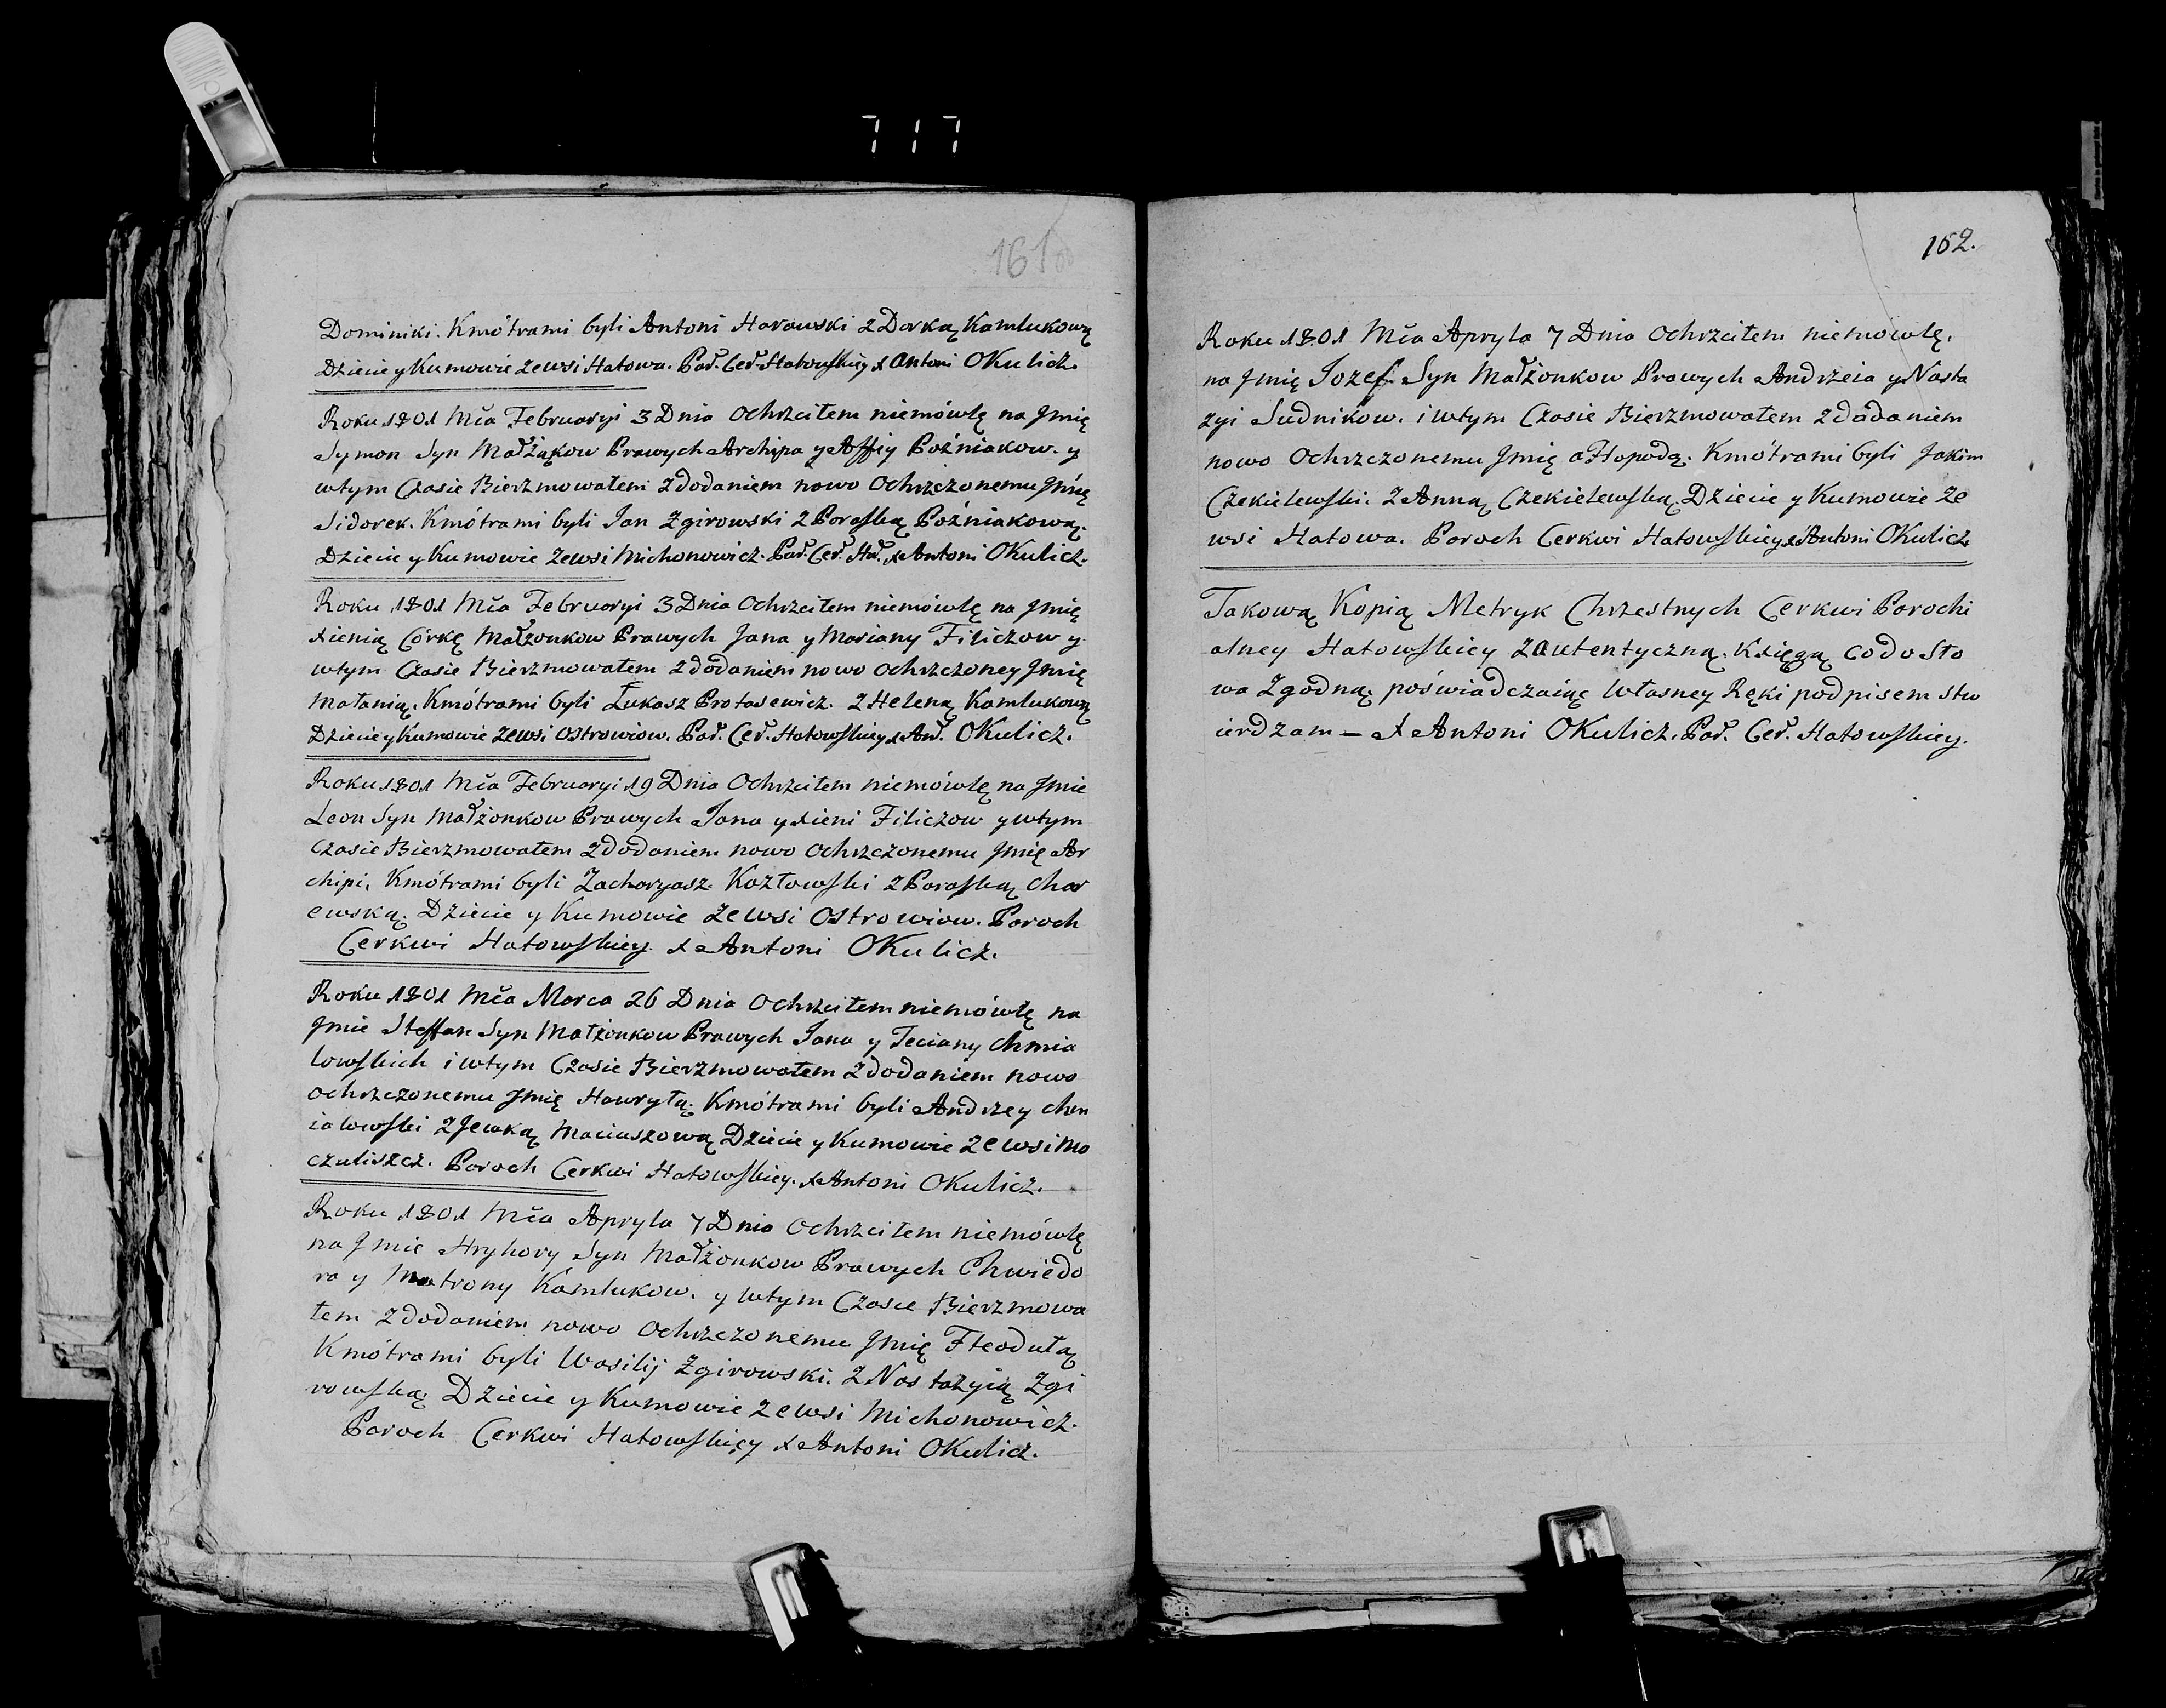 717
161
Dominiki. Kmótrami byli Antoni Harawski z Darką Kamlukową
Dziecie y Kumowie ze wsi Hatowa. Par. Cer. Hatowskiey x Antoni Okulicz.
Roku 1801 Mca Februaryi 3 Dnia Ochrzciłem niemówlę na Jmię
Symon Syn Małżąkow Prawych Archipa y Affiy Poźniakow. y
wtym Czasie Bierzmowałem z dodaniem nowo Ochrzczonemu Jmię
Sidorek. Kmótrami byli Jan Zgirowski z Paraską Poźniakową.
Dziecie y Kumowie ze wsi Michonowicz. Par. Cer. Hat. x Antoni Okulicz.
Roku 1801 Mca Februaryi 3 Dnia Ochrzciłem niemówlę na Jmię
xienią Córkę Małżonkow Prawych Jana y Maryany Filiczow y
wtym Czasie Bierzmowałem z dodaniem nowo ochrzczoney Jmię
Małanią. Kmótrami byli Łukasz Protasewicz. z Heleną Kamlukową
Dziecie y Kumowie ze wsi Ostrowiow. Par. Cer. Hatowskiey x An. Okulicz.
Roku 1801 Mca Februaryi 19 Dnia Ochrzciłem niemówlę na Jmie
Leon Syn Małżonkow Prawych Jana y xieni Filiczow y wtym
Czasie Bierzmowałem z dodaniem nowo ochrzczonemu Jmię Ar
chipi. Kmótrami byli Zacharyasz Kozłowski z Paraską Char
ewską. Dziecie y Kumowie ze wsi Ostrowiow. Paroch
Cerkwi Hatowskiey x Antoni Okulicz.
Roku 1801 Mca Marca 26 Dnia Ochrzciłem niemówlę na
Jmie Steffan Syn Małżonkow Prawych Jana y Teciany Chmia
lowskich i wtym Czasie Bierzmowałem z dodaniem nowo
ochrzczonemu Jmię Hawryłą. Kmótrami byli Andrzey Chm
ialowski z Jewką Maciuszową Dziecie y Kumowie ze wsi Mo
czuliszcz. Paroch Cerkwi Hatowskiey. x Antoni Okulicz.
Roku 1801 Mca Apryla 7 Dnia Ochrzciłem niemówlę
na Jmie Hryhory Syn Małżonkow Prawych Chwiedo
ra y Matrony Kamlukow. y wtym Czasie Bierzmowa
łem z dodaniem nowo Ochrzczonemu Jmię Fteodułą
Kmótrami byli Wasilij Zgirowski. z Nastazyią Zgi
rowską. Dziecie y Kumowie ze wsi Michonowicz.
Paroch Cerkwi Hatowskiey x Antoni Okulicz.
162.
Roku 1801 Mca Apryla 7 Dnia Ochrzciłem niemowlę.
na Jmię Jozef Syn Małżonkow Prawych Andrzeia y Nasta
zyi Sudnikow. i wtym Czasie Bierzmowałem z dodaniem
nowo Ochrzczonemu Jmię aHopodą. Kmótrami byli Jakim
Czekielewski. z Anną Czekielewską. Dziecie y Kumowie ze
wsi Hatowa. Paroch Cerkwi Hatowskiey x Antoni Okulicz
Takową Kopią Metryk Chrzestnych Cerkwi Parochi
alney Hatowskiey z autentyczną. Xięgą co do sło
wa Zgodną poświadczaiąc własney Ręki podpisem stw
ierdzam – x Antoni Okulicz. Par. Cer. Hatowskiey.